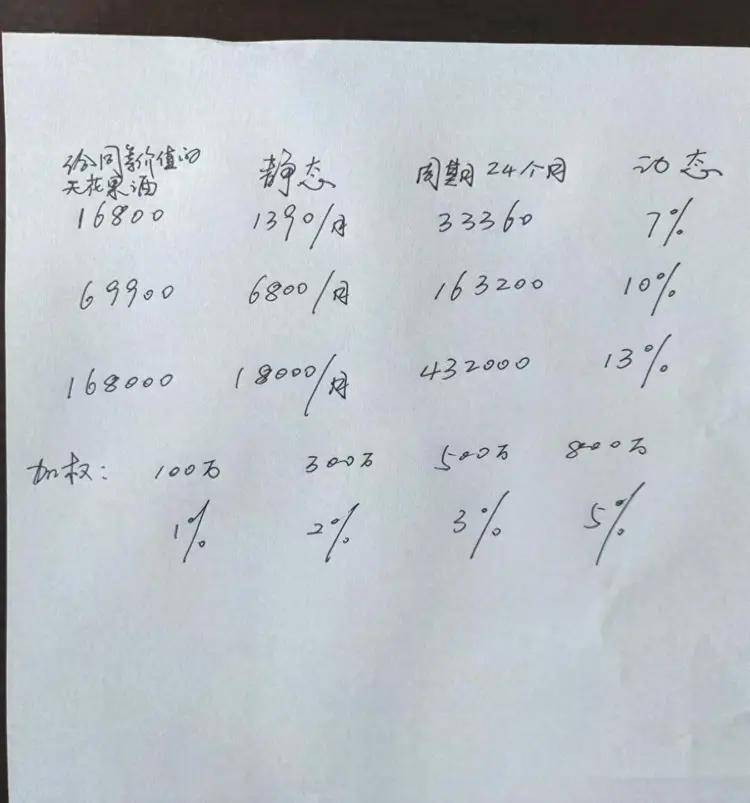 给同等价值的
无花果酒 静态 周期24个月 动态
16800 1390/月 33360 7%
69900 6800/月 163200 10%
168000 18000/月 432000 13%
加权: 100万 300万 500万 800万
1% 2% 3% 5%